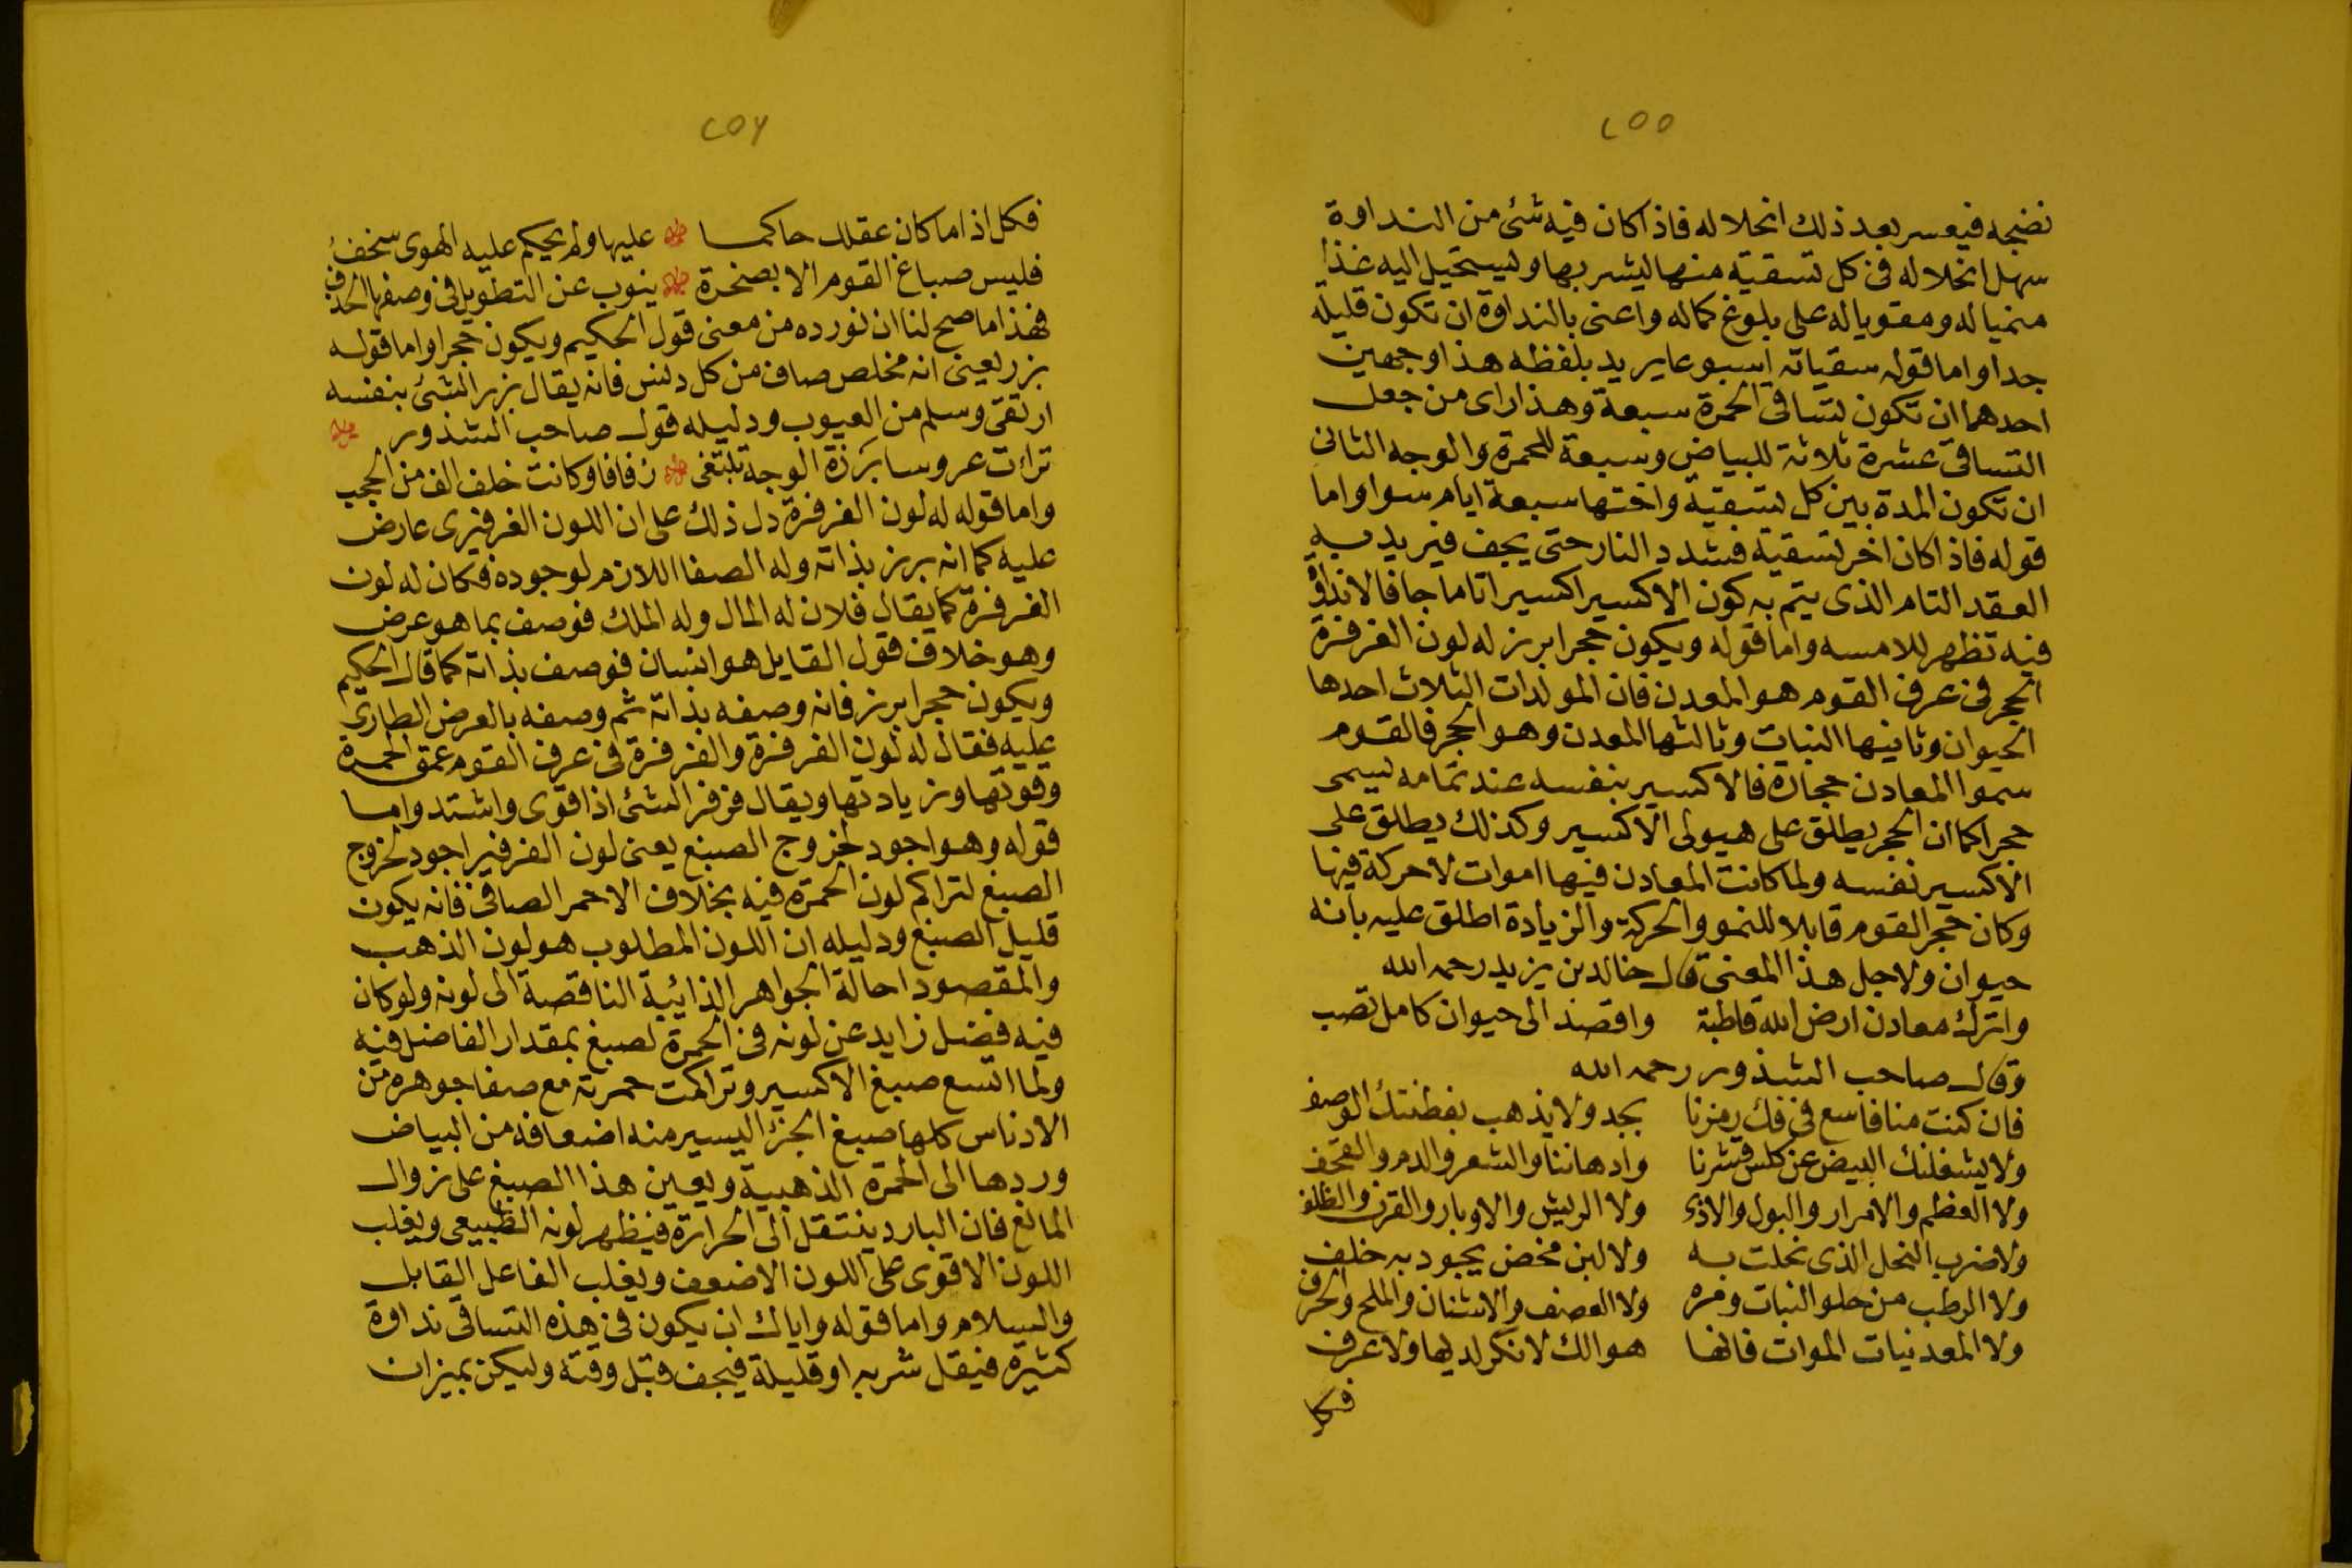 ٢٥٥
نضجه فيعسر بعد ذلك انحلاله فاذا كان فيه شئ من النداوة
سهل انحلاله فى كل تسقية منها ليشربها وليستحيل اليه غذا
منميا له ومقويا له على بلوغ كماله واعنى بالنداوة ان تكون قليله
جدا واما قوله سقياته اسبوعا يريد بلفظه هذا وجهين
احدهما ان تكون تساقى الحمرة سبعة وهذا راى من جعل
التساقى عشرة ثلاثة للبياض وسبعة للحمرة والوجه الثانى
ان تكون المدة بين كل تسقية واختها سبعة ايام سوا واما
قوله فاذا كان اخر تسقية فشدد النار حتى يجف فيريد به
العقد التام الذى يتم به كون الاكسير اكسيرا تاما جافا لا نداوة
فيه تظهر للامسه واما قوله ويكون حجرا برز له لون الفرفرة
الحجر فى عرف القوم هو المعدن فان المولدات الثلاث احدها
الحيوان وثانيها النبات وثالثها المعدن وهو الحجر فالقوم
سموا المعادن حجارة فالاكسير بنفسه عند تمامه يسمى
حجرا كما ان الحجر يطلق على هيولى الاكسير وكذلك يطلق على
الاكسير نفسه ولما كانت المعادن فيها اموات لا حركة فيها
وكان حجر القوم قابلا للنمو والحركة والزيادة اطلق عليه بانه
حيوان ولاجل هذا المعنى قال خالد بن يزيد رحمه الله
واترك معادن ارض الله قاطبة واقصد الى حيوان كامل تصب
وقال صاحب الشذور رحمه الله
فان كنت منا فاسع فى فك رمزنا بجد ولا يذهب بفطنتك الوصف
ولا يشغلنك البيض عن كلس قشرنا وادهاننا والشعر والدم والقحف
ولا العظم والامرار والبول والاذى ولا الريش والاوبار والقرن والظلف
ولا ضرب النحل الذى نحلت به ولا لبن محض يجود به خلف
ولا الرطب من حلو النبات ومره ولا العصف والاشنان والملح والحرف
ولا المعدنيات الموات فانها هوالك لا نكر لديها ولا عرف
فكل
٢٥٦
فكل اذا ما كان عقلك حاكما عليها ولم يحكم عليه الهوى سخف
فليس صباغ القوم الا بصخرة ينوب عن التطويل فى وصفها الحذف
فهذا ما صح لنا ان نورده من معنى قول الحكيم ويكون حجرا واما قوله
برز يعنى انه مخلص صاف من كل دنس فانه يقال برز الشئ بنفسه
ارتقى وسلم من العيوب ودليله قول صاحب الشذور
تراءت عروسا برزة الوجه تبتغى زفافا وكانت خلف الف من الحجب
واما قوله له لون الفرفرة دل ذلك على ان اللون الفرفيرى عارض
عليه كما انه برز بذاته وله الصفا اللازم لوجوده فكان له لون
الفرفرة كما يقال فلان له المال وله الملك فوصف بما هو عرض
وهو خلاف قول القايل هو انسان فوصف بذاته كما قال الحكيم
ويكون حجرا برز فانه وصفه بذاته ثم وصفه بالعرض الطارى
عليه فقال له لون الفرفرة والفرفرة فى عرف القوم عمق الحمرة
وقوتها وزيادتها ويقال فرفر الشئ اذا قوى واشتد واما
قوله وهو اجود لخروج الصبغ يعنى لون الفرفير اجود لخروج
الصبغ لتراكم لون الحمرة فيه بخلاف الاحمر الصافى فانه يكون
قليل الصبغ ودليله ان اللون المطلوب هو لون الذهب
والمقصود احالة الجواهر الذائبة الناقصة الى لونه ولو كان
فيه فضل زايد عن لونه فى الحمرة لصبغ بمقدار الفاضل فيه
ولما اتسع صبغ الاكسير وتراكمت حمرته مع صفا جوهره من
الادناس كلها صبغ الجزء اليسير منه اضعافه من البياض
وردها الى الحمرة الذهبية ويعين هذا الصبغ على زوال
المانع فان البارد ينتقل الى الحرارة فيظهر لونه الطبيعى ويغلب
اللون الاقوى على اللون الاضعف ويغلب الفاعل القابل
والسلام واما قوله واياك ان يكون فى هذه التساقى نداوة
كثيرة فيقل شربه او قليلة فيجف قبل وقته وليكن بميزان